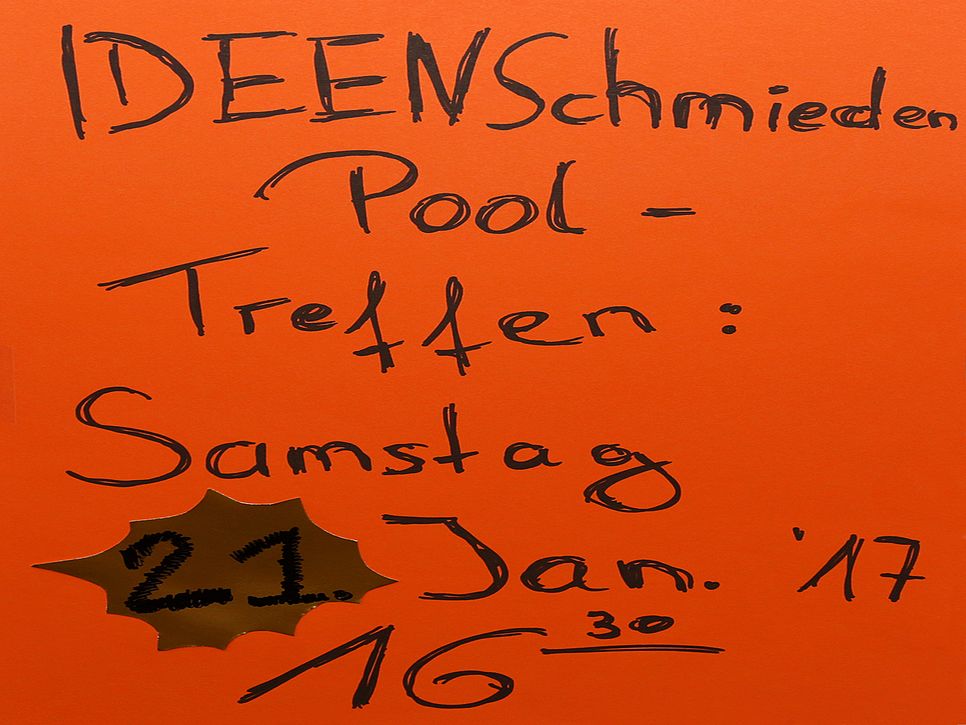 IDEENSchmieden
Pool -
Treffen :
Samstag
21. Jan. '17
16 30